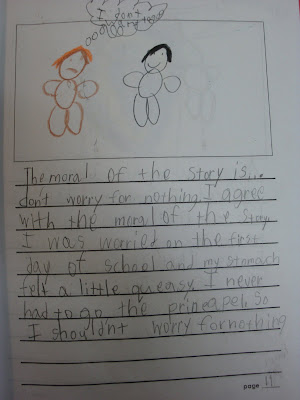 I don't
agree
The moral of the story is...
don't worry for nothing. I agree
with the moral of the story
I was worried on the first
day of school and my stomach
felt a little queasy. I never
had to go the princapel. So
I shouldnt worry for nothing
page 11